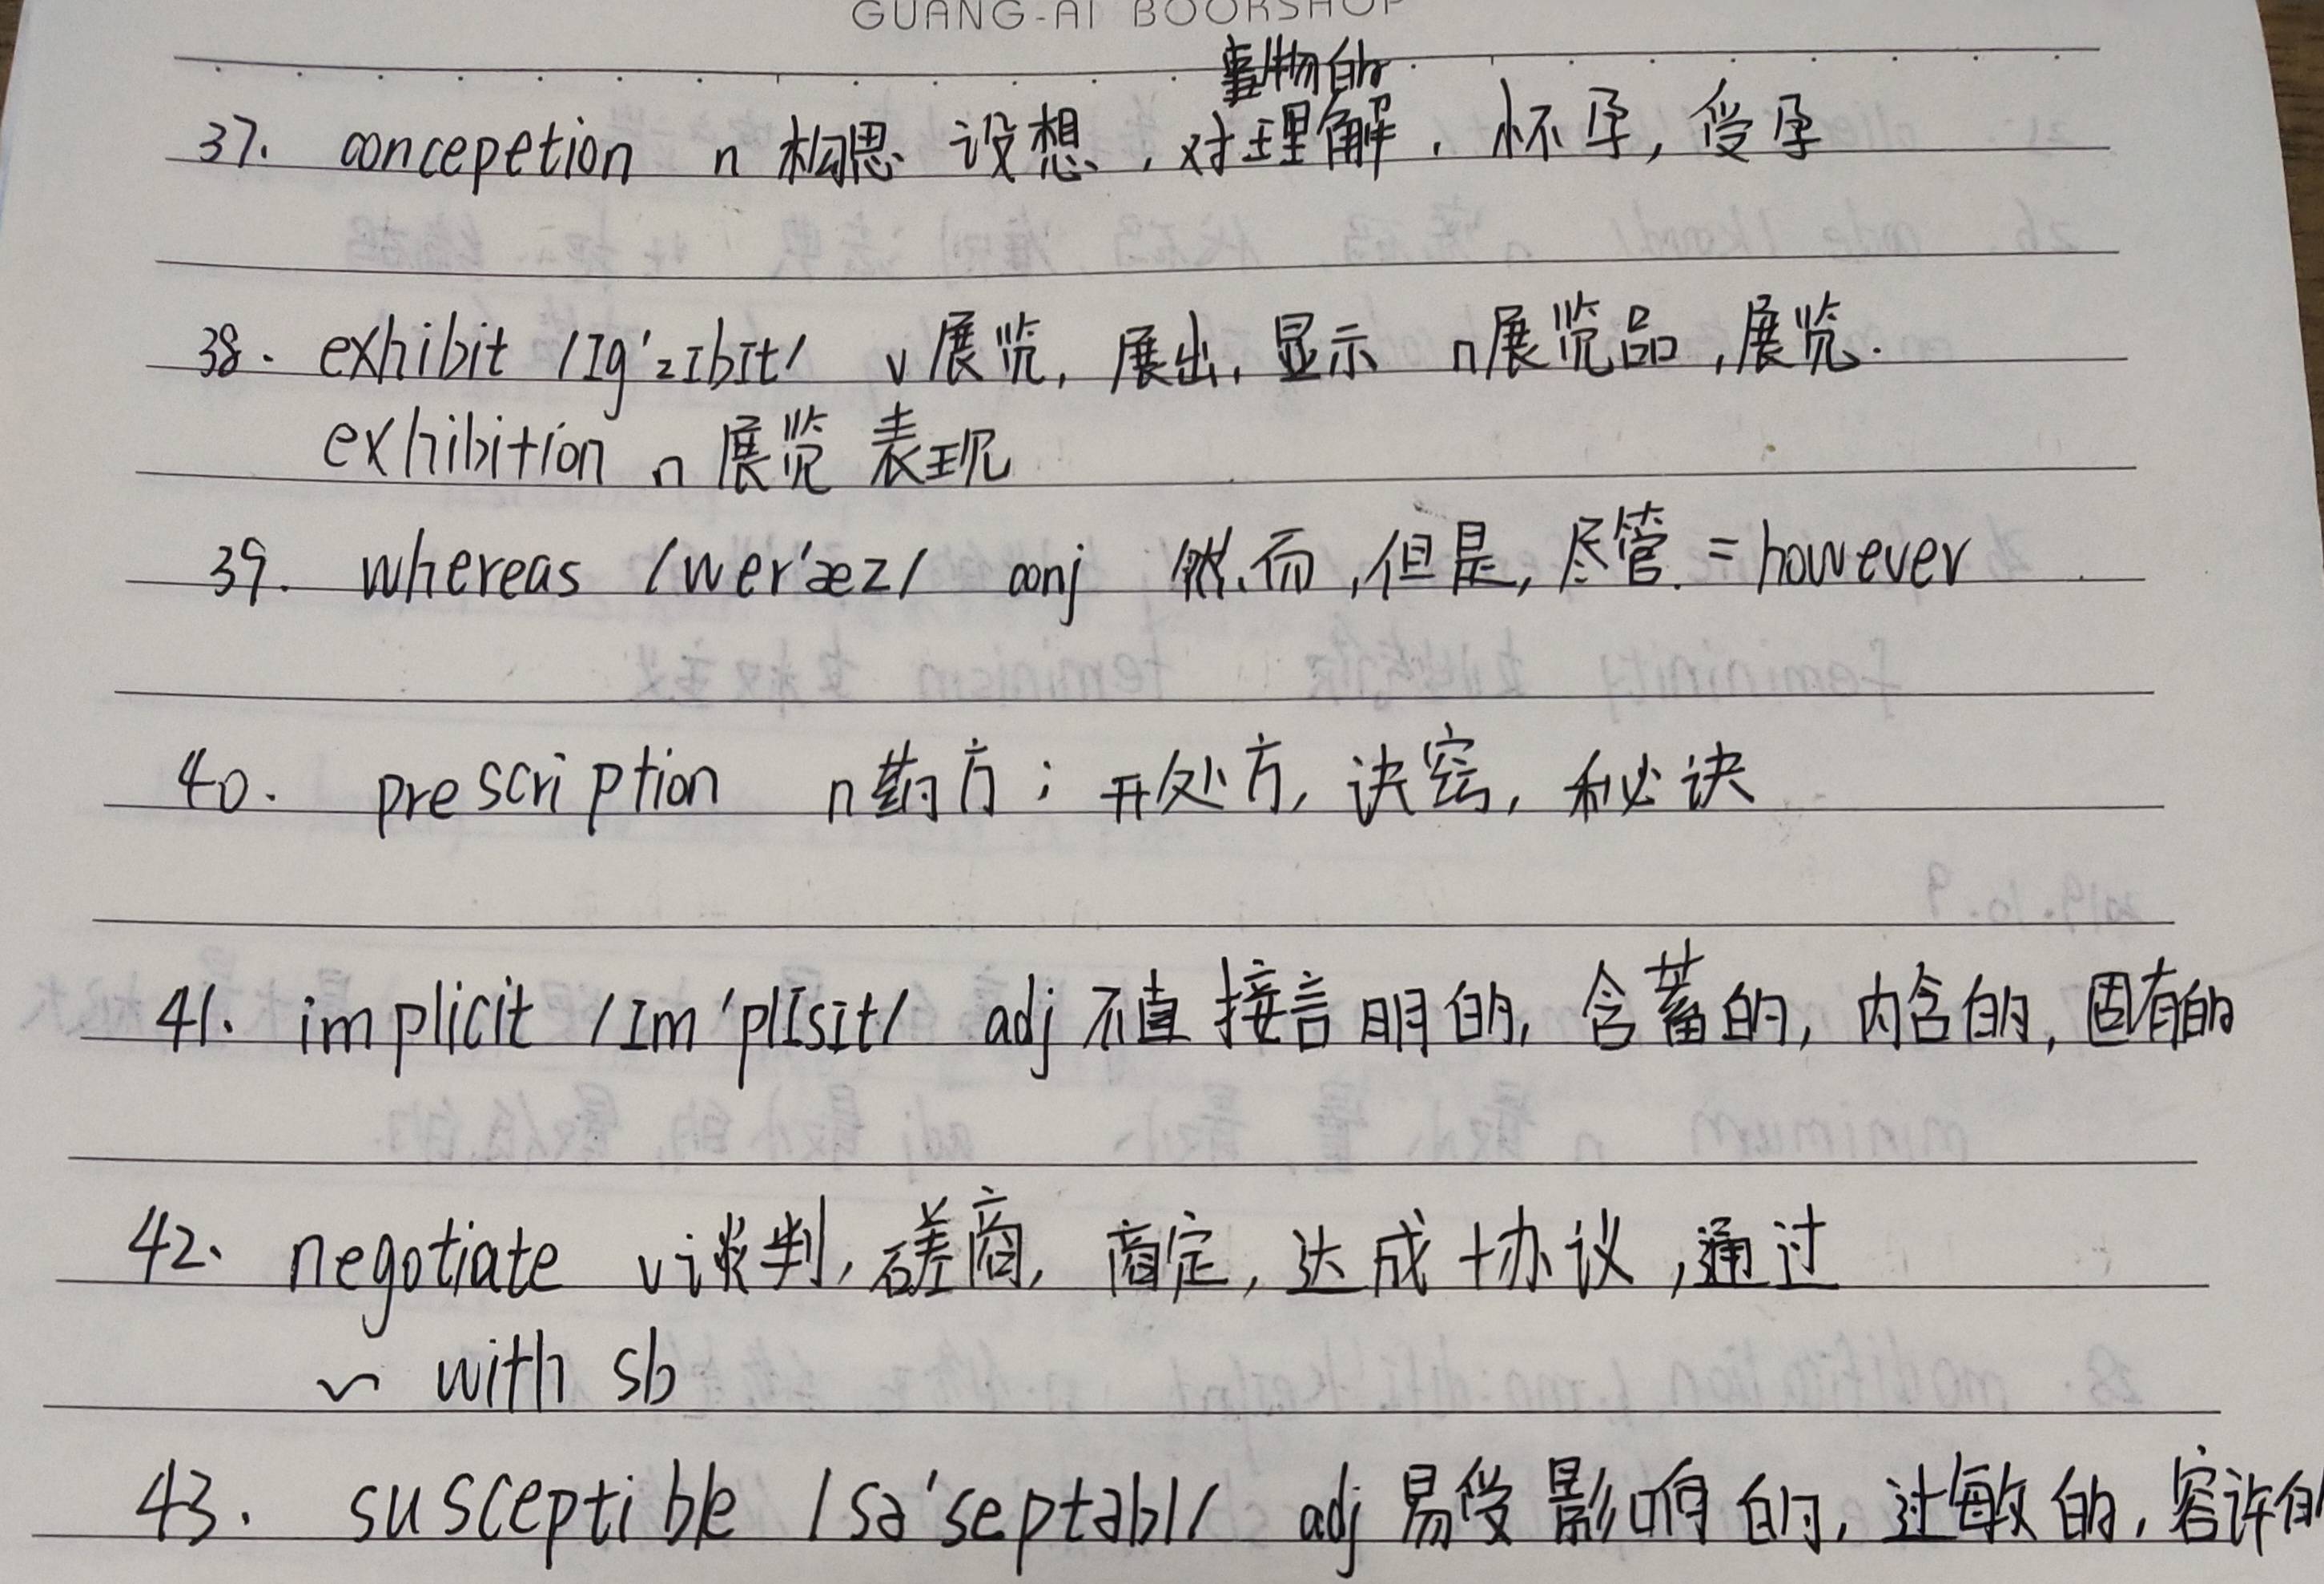 GUANG-AI BOOKSHOP
事物的
37. concepetion n 构思 设想, 对理解, 怀孕, 受孕
38. exhibit /Ig'zIbIt/ v展览, 展出, 显示 n展览品, 展览.
exhibition n 展览 表现
39. whereas /wer'æz/ conj 然而, 但是, 尽管. = however
40. prescription n药方; 开处方, 诀窍, 秘诀
41. implicit /Im'plIsIt/ adj 不直接言明的, 含蓄的, 内含的, 固有的
42、 negotiate vi谈判, 磋商, 商定, 达成协议, 通过
~ with sb
43. susceptible /sə'septəbl/ adj 易受影响的, 过敏的, 容许的